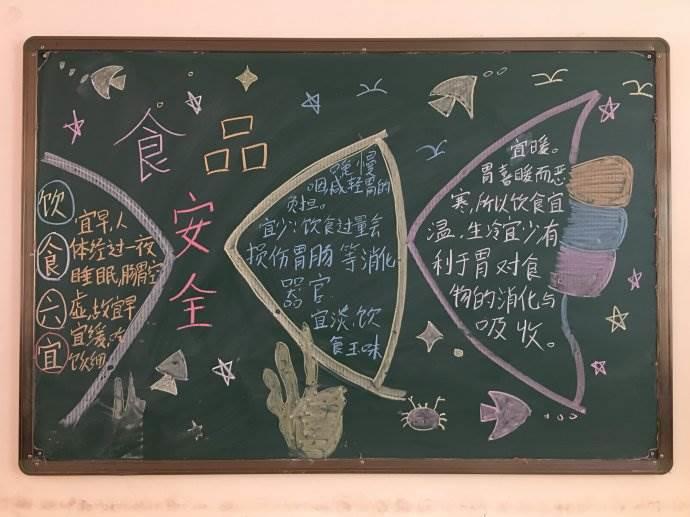 食品
安全
饮食六宜
宜早,人
体经过一夜
睡眠,肠胃空
虚,故宜早
宜缓,吃
饮细
嚼慢
咽,减轻胃的
负担。
宜少:饮食过量会
损伤胃肠等消化
器官
宜淡,饮
食五味
宜暖。
胃喜暖而恶
寒,所以饮食宜
温,生冷宜少有
利于胃对食
物的消化与
吸收。